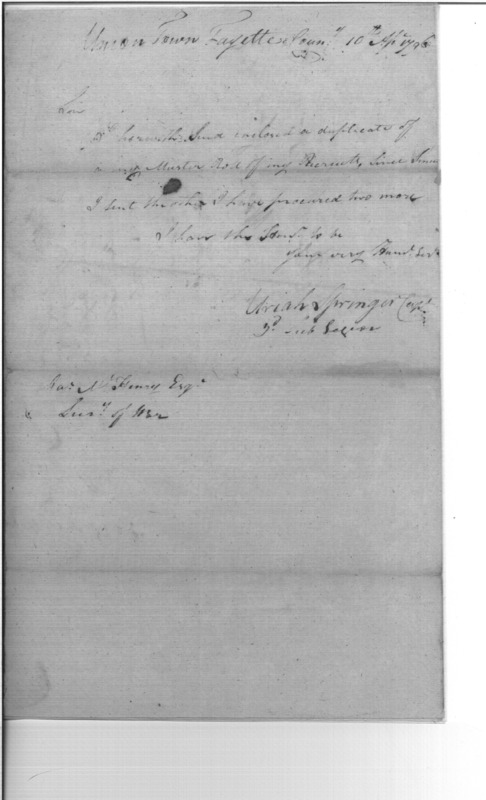 Union Town Fayette Coun.y 10th Apl 1796
Sir
I herewith Send enclosed a duplicate of
my Muster Roll of my Recruits, Since
I Sent the other I have procured two more
I have the Honr. to be
your very Humb. Ser.t
Uriah Springer Capt.
3d Sub Legion
Jas. Mc Henry Esqr.
Secry. of War